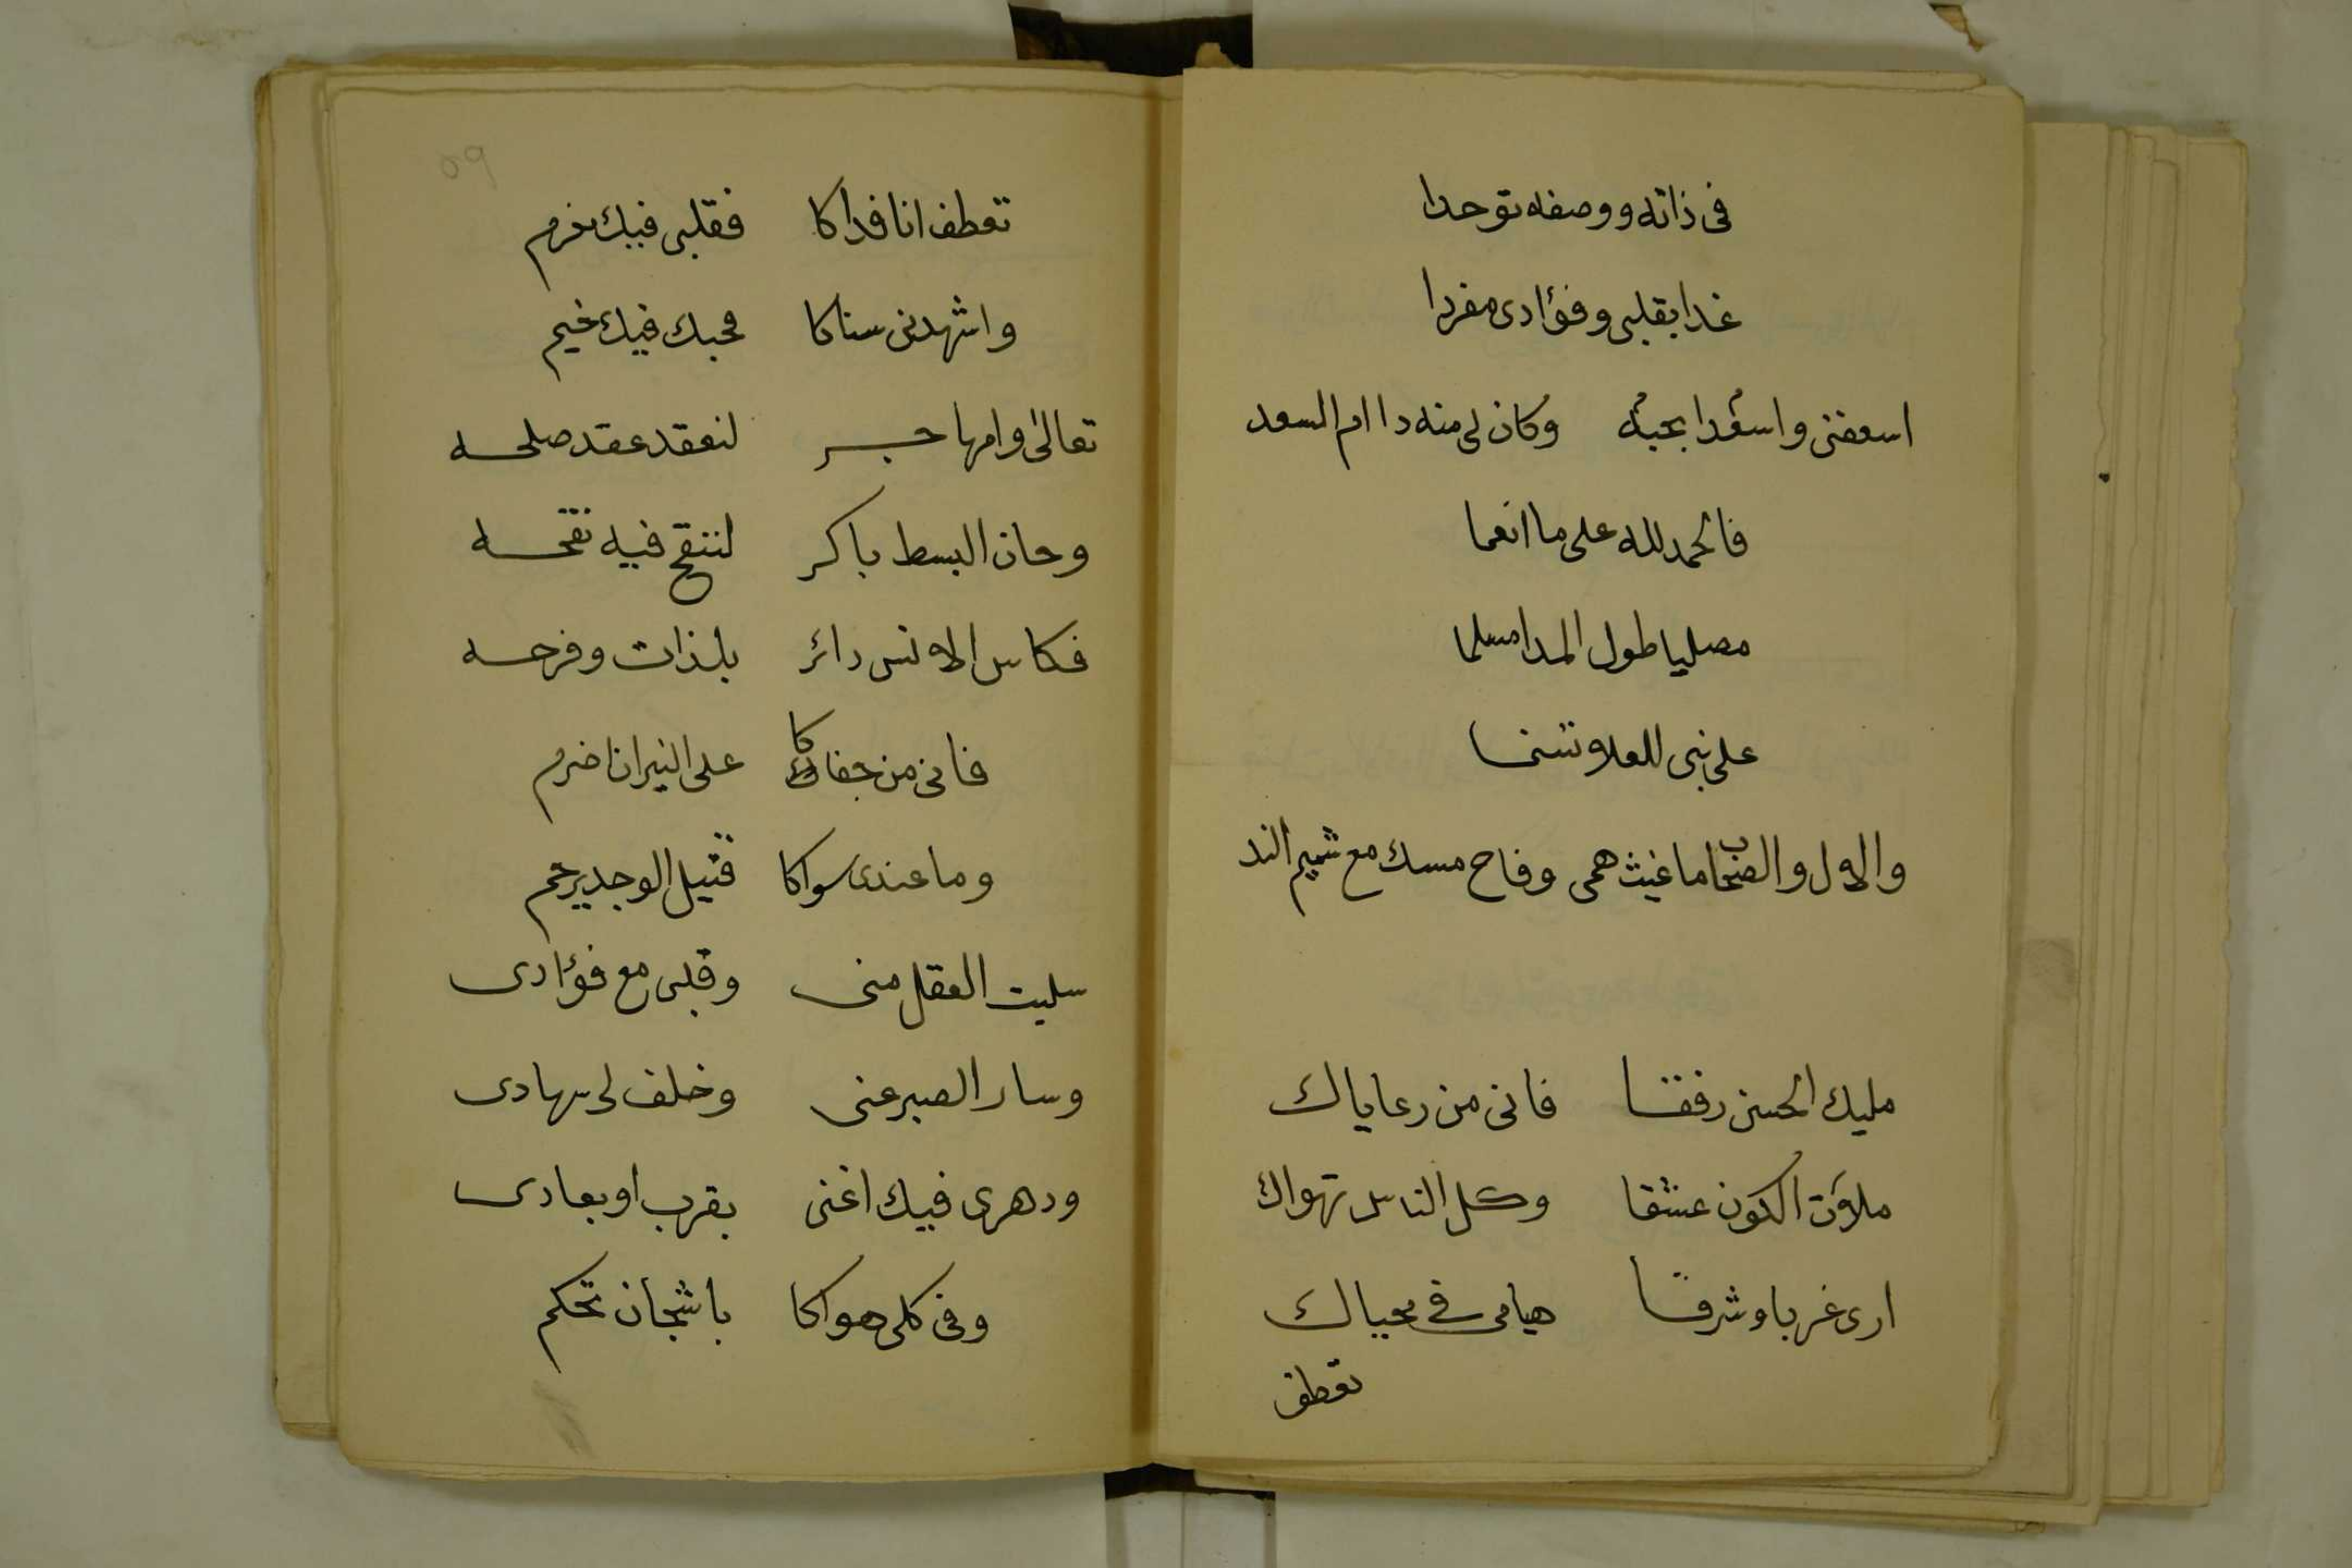 فى ذاته ووصفه توحدا
غدا بقلبى وفؤادى مفردا
اسعفنى واسعدا بحبه وكان لى منه دا ام السعد
فالحمد لله على ما انعما
مصليا طول المدا مسلما
على نبى للعلا تسنما
والال والصحاب ما غيث همى وفاح مسك مع شميم الند
مليك الحسن رفقا فانى من رعاياك
ملأت الكون عشقا وكل الناس تهواك
ارى غربا وشرقا هيامى فى محياك
تعطف
٥٩
تعطف انا فداكا فقلبى فيك مغرم
واشهدنى سناكا محبك فيك خيم
تعالى وامها جر لنعقد عقد صلحه
وحان البسط باكر لننقح فيه نقحه
فكاس الانس دائر بلذات وفرحه
فانى من جفاكا على النيران اضرم
وما عندى سواكا قتيل الوجد يرحم
سلبت العقل منى وقلبى مع فؤادى
وسار الصبر عنى وخلف لى سهادى
ودهرى فيك اغنى بقرب او بعادى
وفى كلى هواكا باشجان تحكم